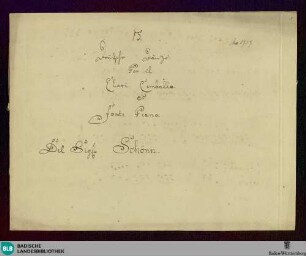 13.
Deutsche Tänze
Per il
Clavi Cembalo
o
Forte Piano
Del Sigr. Schönn.
BLB BADISCHE
LANDESBIBLIOTHEK
Baden-Württemberg